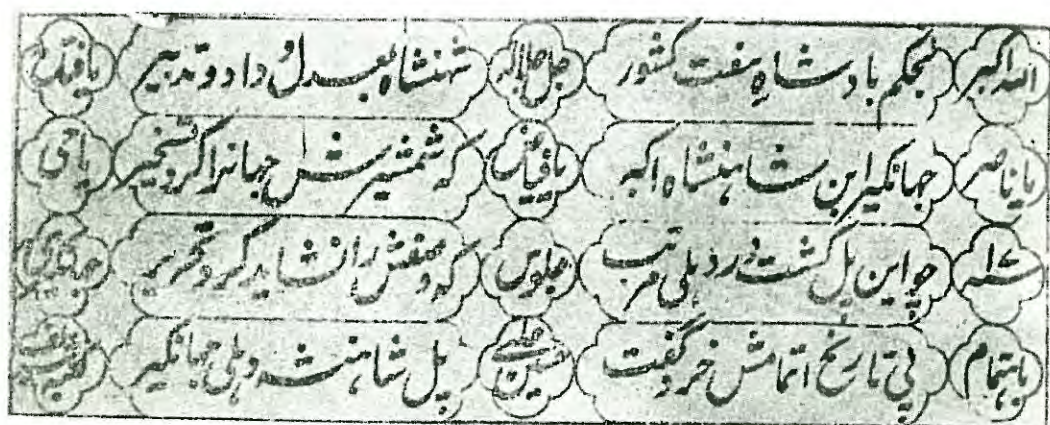 الله اکبر بحکم بادشاه هفت کشور جل جلاله شهنشاه بعدل و داد و تدبیر یافتاح
یا ناصر جهانگیر ابن شاهنشاه اکبر یافیاض که شمشیرش جهانرا کرد تسخیر یا حی
سنه ۱۷ چو این پل گشت در دهلی مرتب جلوس که وصفش را نشاید کرد تحریر جهانگیری
باهتمام پی تاریخ اتمامش خرد گفت حسین پل شاهنشه دهلی جهانگیر